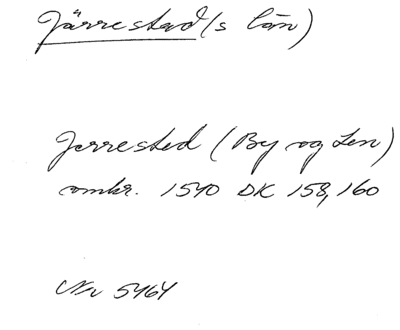 Järrestad(s län)
Jerrested (By og Len)
omkr. 1540 DK 158, 160
Nr 5464